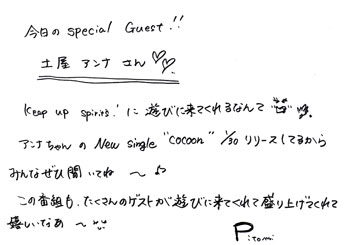 今日の special Guest!!
土屋 アンナ さん♡♡
Keep up spirits! に 遊びに来てくれるなんて
アンナちゃんの New single "cocoon" 1/30 リリースしてるから
みんなぜひ聞いてね 〜♪
この番組も、たくさんのゲストが遊びに来てくれて盛り上げてくれて
嬉しいなあ 〜
Pitomi